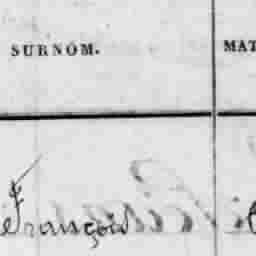 SURNOM. MAT
François